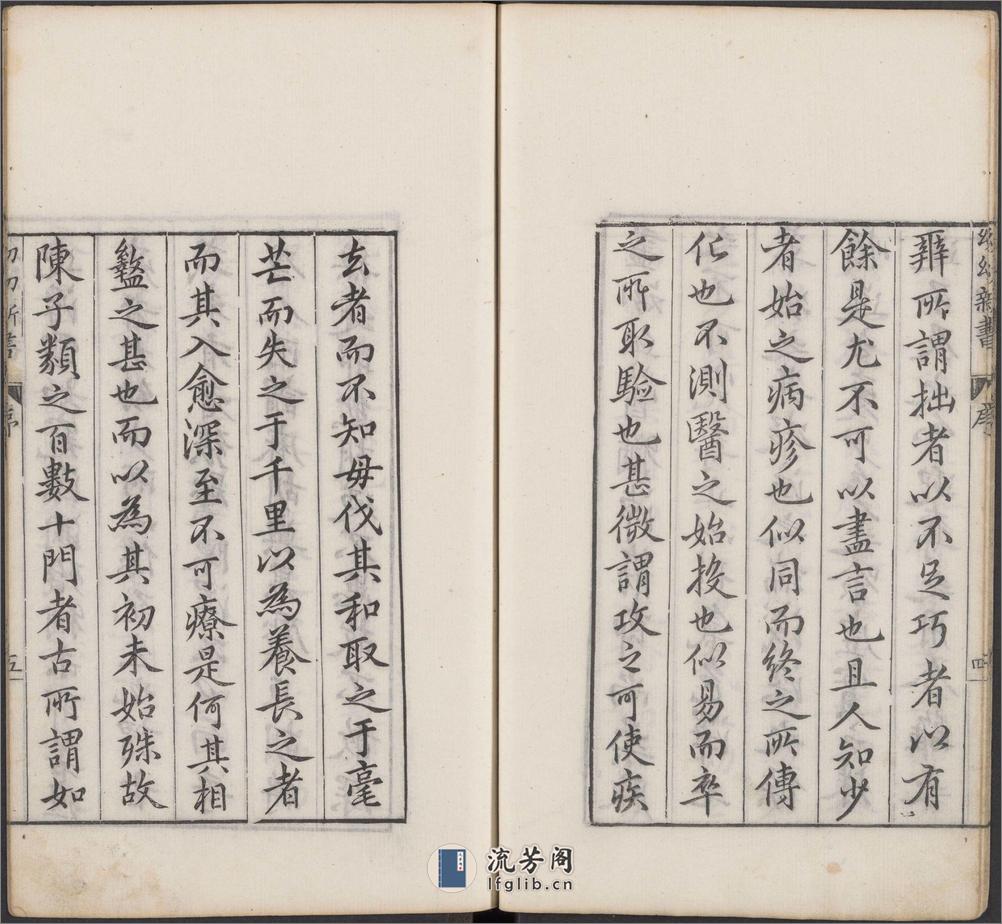 幼幼新書 序 四
辯所謂拙者以不足巧者以有
餘是尤不可以盡言也且人知少
者始之病疹也似同而終之所傳
化也不測醫之始投也似易而卒
之所取驗也甚微謂攻之可使疾
去者而不知毋伐其和取之于毫
芒而失之于千里以為養長之者
而其入愈深至不可療是何其相
盭之甚也而以為其初未始殊故
陳子類之百數十門者古所謂如
幼幼新書 序 五
流芳阁
lfglib.cn